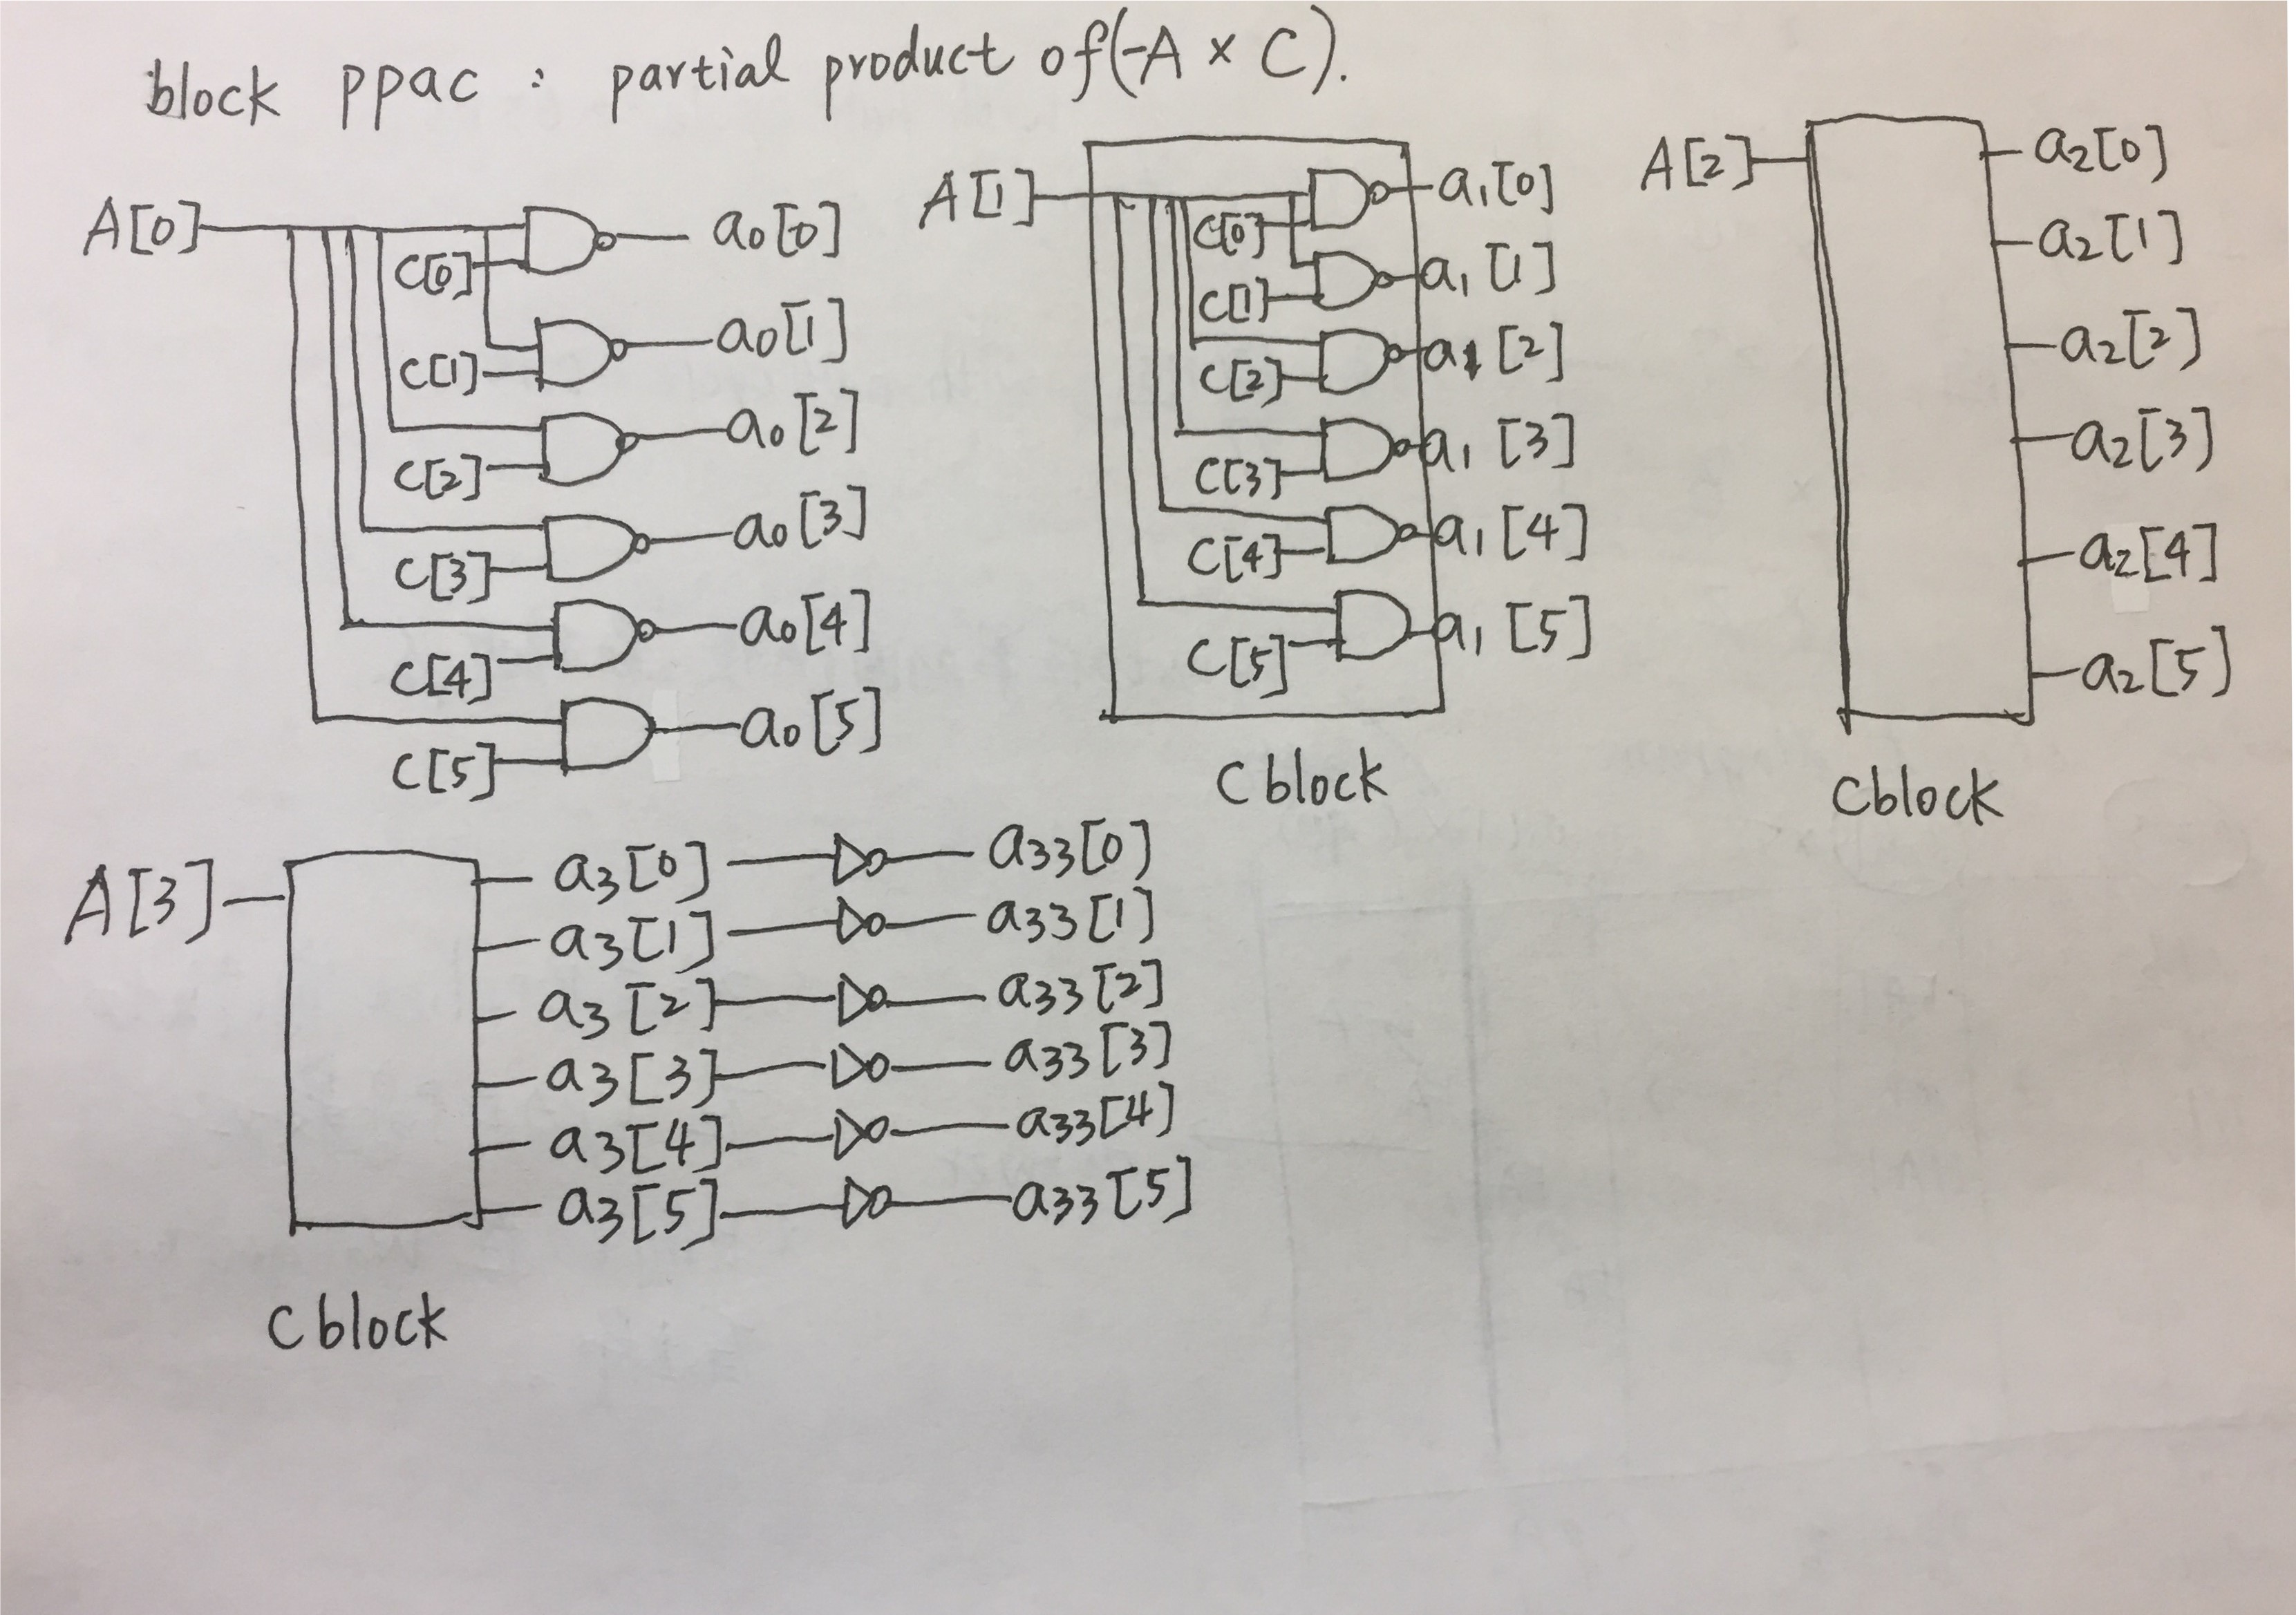 block ppac : partial product of (-A × C).
A[0]
C[0]
a0[0]
C[1]
a0[1]
C[2]
a0[2]
C[3]
a0[3]
C[4]
a0[4]
C[5]
a0[5]
A[1]
C[0]
a1[0]
C[1]
a1[1]
C[2]
a1[2]
C[3]
a1[3]
C[4]
a1[4]
C[5]
a1[5]
Cblock
A[2]
a2[0]
a2[1]
a2[2]
a2[3]
a2[4]
a2[5]
Cblock
A[3]
a3[0] a33[0]
a3[1] a33[1]
a3[2] a33[2]
a3[3] a33[3]
a3[4] a33[4]
a3[5] a33[5]
Cblock